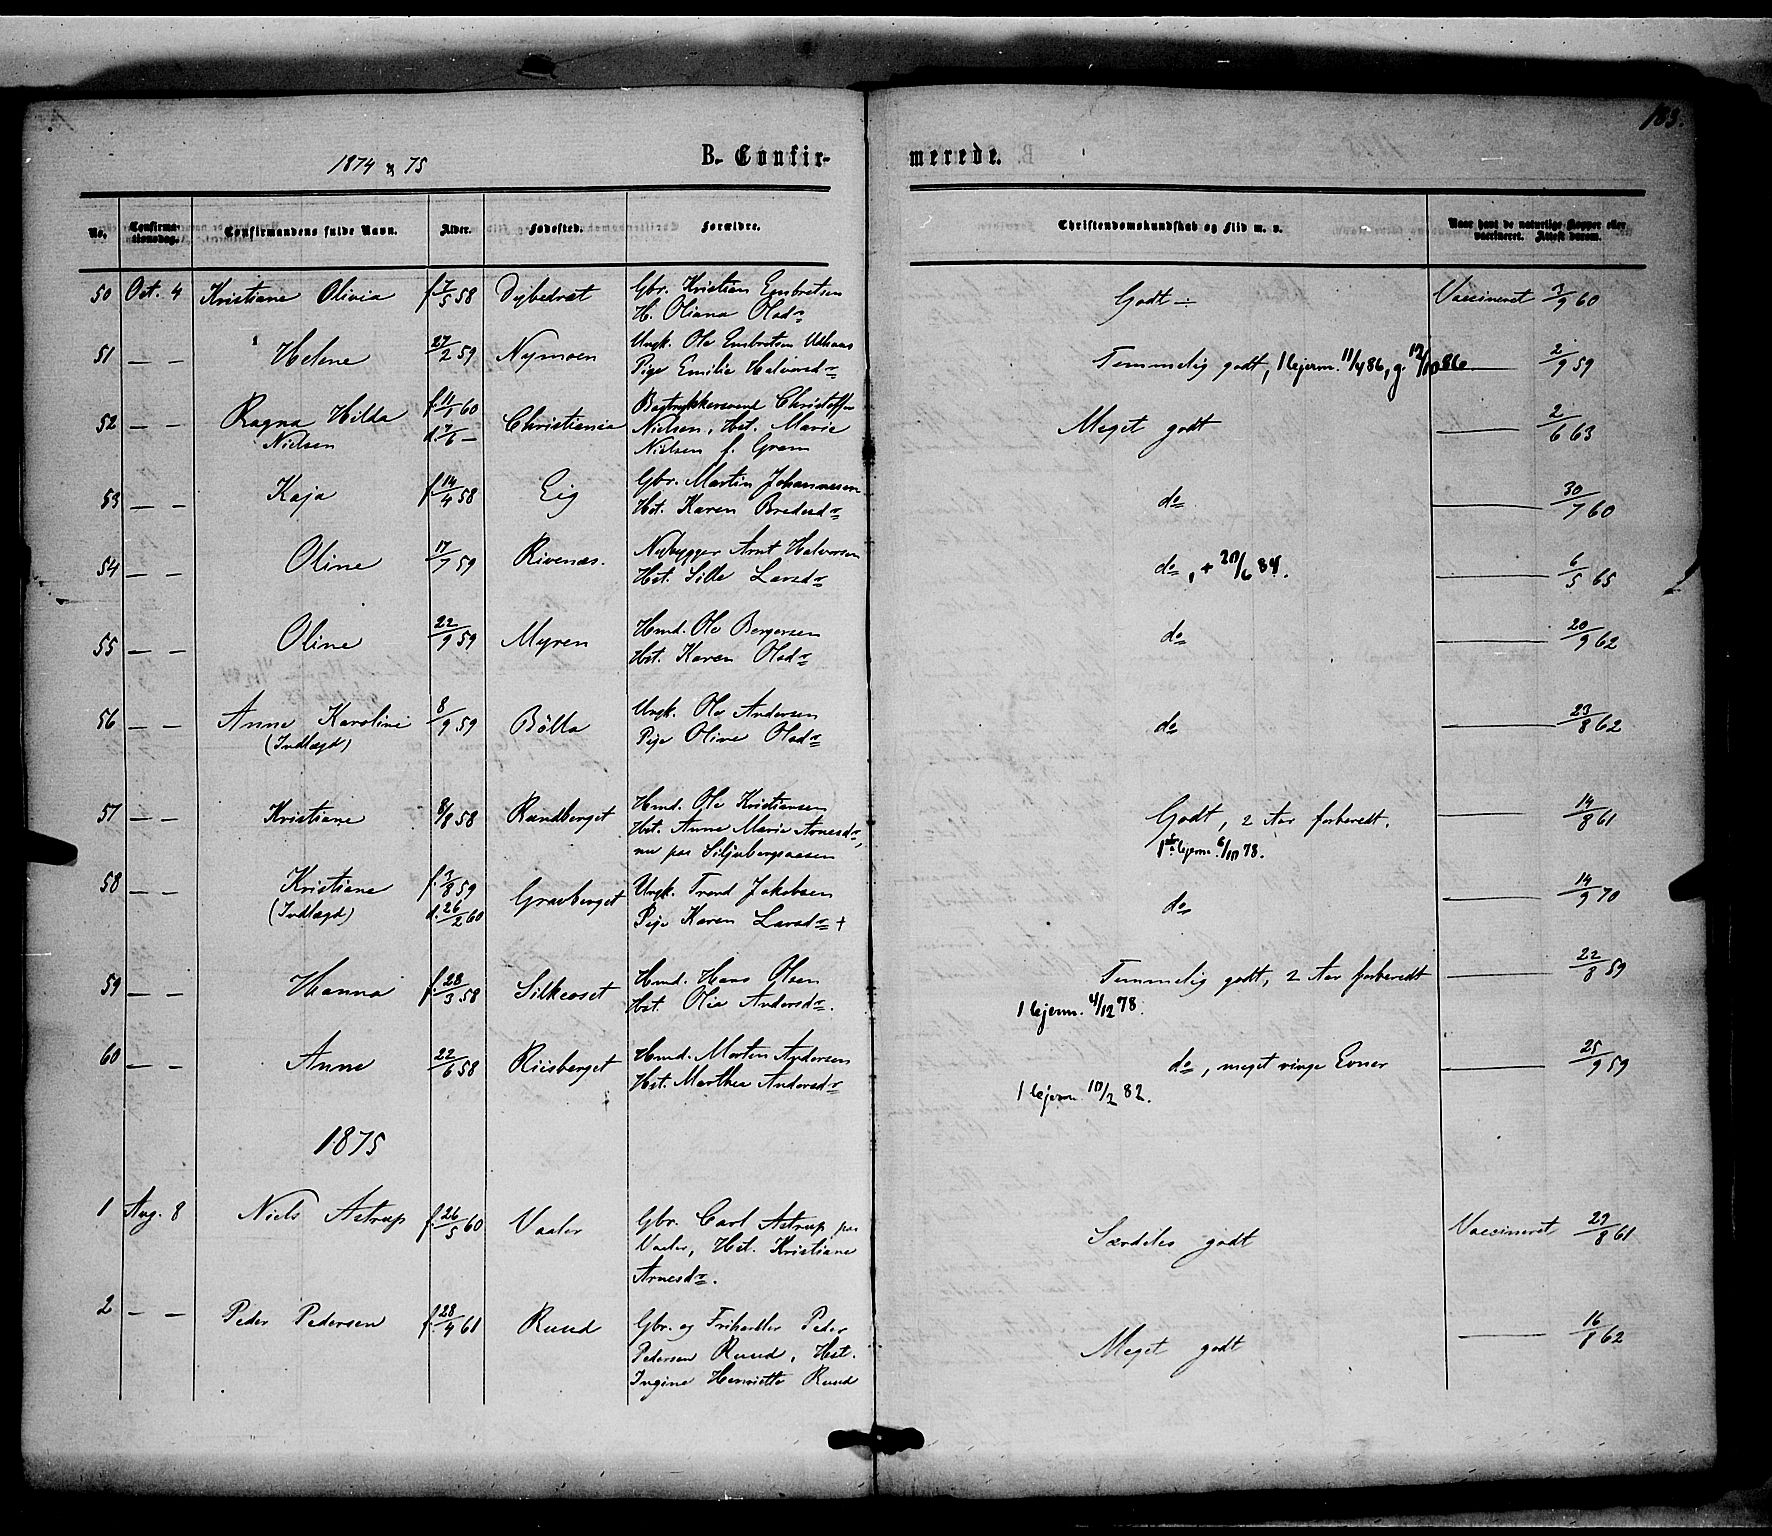 183.
1874 & 75
B. Confirmerede.
No. Confirmationsdag. Confirmandens fulde Navn. Alder. Fødested. Forældre. Christendomskundskab og Flid m. v. Naar havt de naturlige Kopper eller vaccineret. Attest derom.
50 Oct. 4 Kristiane Olivia f. 7/5 58 Dybedræt Gbr. Kristian Embretsen Godt ÷ Vaccineret 3/9 60
H. Oliana Olsdr
51 — — Helene 27/2 59 Nymoen Ungk. Ole Embretsen Temmelig godt, 1 lejerm. 11/4 86, g. 12/10 86 — 2/9 59
Pige Emilie Halvorsdr
52 — — Ragna Hilda f. 11/1 60 Christiania Bogtrykkersvend Christoffer Meget godt — 2/6 63
Nielsen d. 7/6 — Nielsen, Hst. Marie
Nielsen f. Gram
53 — — Kaja f. 14/4 58 Eig Gbr. Martin Johannesen do — 30/7 60
Hst. Karen Bredesdr
54 — — Oline 17/7 59 Rivenæs. Nybygger Arnt Halvorsen do, + 20/6 84. — 6/5 65
Hst. Sille Larsdr
55 — — Oline 22/9 59 Myren Hmd. Ole Bergersen do — 20/9 62
Hst. Karen Olsdr
56 — — Anne Karoline 8/9 59 Bölla Ungk. Ole Andersen do — 23/8 62
(Indlagd) Pige Oline Olsdr
57 — — Kristiane 8/8 58 Rundberget Hmd. Ole Kristiansen Godt, 2 Aar forberedt. — 14/8 61
Hst. Anne Marie Arnesdr, 1ste lejerm. 6/10 78.
nu paa Siljubergsaasen
58 — — Kristiane f. 3/8 59 Gravberget Ungk. Trond Jakobsen do — 14/9 70
(Indlagd) d. 26/2 60 Pige Karen Larsdr +
59 — — Hanna f. 28/3 58 Silkeoset Hmd. Hans Olsen Temmelig godt, 2 Aar forberedt — 22/8 59
Hst. Olea Andersdr. 1 lejerm. 4/12 78.
60 — — Anne 22/6 58 Riisberget Hmd. Morten Andersen do, meget ringe Evner — 25/9 59
Hst. Marthea Andersdr 1 lejerm. 10/2 82.
1875
1 Aug. 8 Niels Astrup f. 26/5 60 Vaaler Gbr. Carl Astrup paa Særdeles godt Vaccineret 29/8 61
Vaaler, Hst. Kristiane
Arnesdr.
2 — — Peder Pedersen f. 28/4 61 Ruud Gbr. og Frihandler Peder Meget godt — 16/8 62
Pedersen Ruud, Hst.
Ingine Henriette Ruud